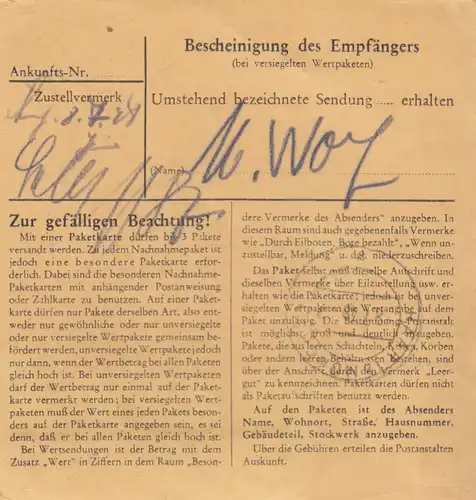 Ankunfts-Nr.
Zustellvermerk
Bescheinigung des Empfängers
(bei versiegelten Wertpaketen)
Umstehend bezeichnete Sendung ..... erhalten
(Name)
Zur gefälligen Beachtung!
Mit einer Paketkarte dürfen bis 3 Pakete
versandt werden. Zu jedem Nachnahmepaket ist
jedoch eine besondere Paketkarte erfor-
derlich. Dabei sind die besonderen Nachnahme-
Paketkarten mit anhängender Postanweisung
oder Zahlkarte zu benutzen. Auf einer Paket-
karte dürfen nur Pakete derselben Art, also ent-
weder nur gewöhnliche oder nur unversiegelte
oder nur versiegelte Wertpakete gemeinsam be-
fördert werden, unversiegelte Wertpakete jedoch
nur dann, wenn der Wertbetrag bei allen Paketen
gleich hoch ist. Bei unversiegelten Wertpaketen
darf der Wertbetrag nur einmal auf der Paket-
karte vermerkt werden; bei versiegelten Wert-
paketen muß der Wert eines jeden Pakets beson-
ders auf der Paketkarte angegeben sein, es sei
denn, daß er bei allen Paketen gleich hoch ist.
Bei Wertsendungen ist der Betrag mit dem
Zusatz „Wert" in Ziffern in dem Raum „Beson-
dere Vermerke des Absenders" anzugeben. In
diesem Raum sind auch gegebenenfalls Vermerke
wie „Durch Eilboten, Bote bezahlt", „Wenn un-
zustellbar, Meldung" u. dgl. niederzuschreiben.
Das Paket selbst muß dieselbe Aufschrift und
dieselben Vermerke über Eilzustellung usw. er-
halten wie die Paketkarte; jedoch ist bei unver-
siegelten Wertpaketen die Wertangabe auf dem
Paket unzulässig. Die Bestimmungs-Postanstalt
ist möglichst groß und deutlich anzugeben.
Pakete, die aus leeren Schachteln, Kisten, Körben
oder andern leeren Behältnissen bestehen, sind
über der Anschrift durch den Vermerk „Leer-
gut" zu kennzeichnen. Paketkarten dürfen nicht
als Paketaufschriften benutzt werden.
Auf den Paketen ist des Absenders
Name, Wohnort, Straße, Hausnummer,
Gebäudeteil, Stockwerk anzugeben.
Über die Gebühren erteilen die Postanstalten
Auskunft.